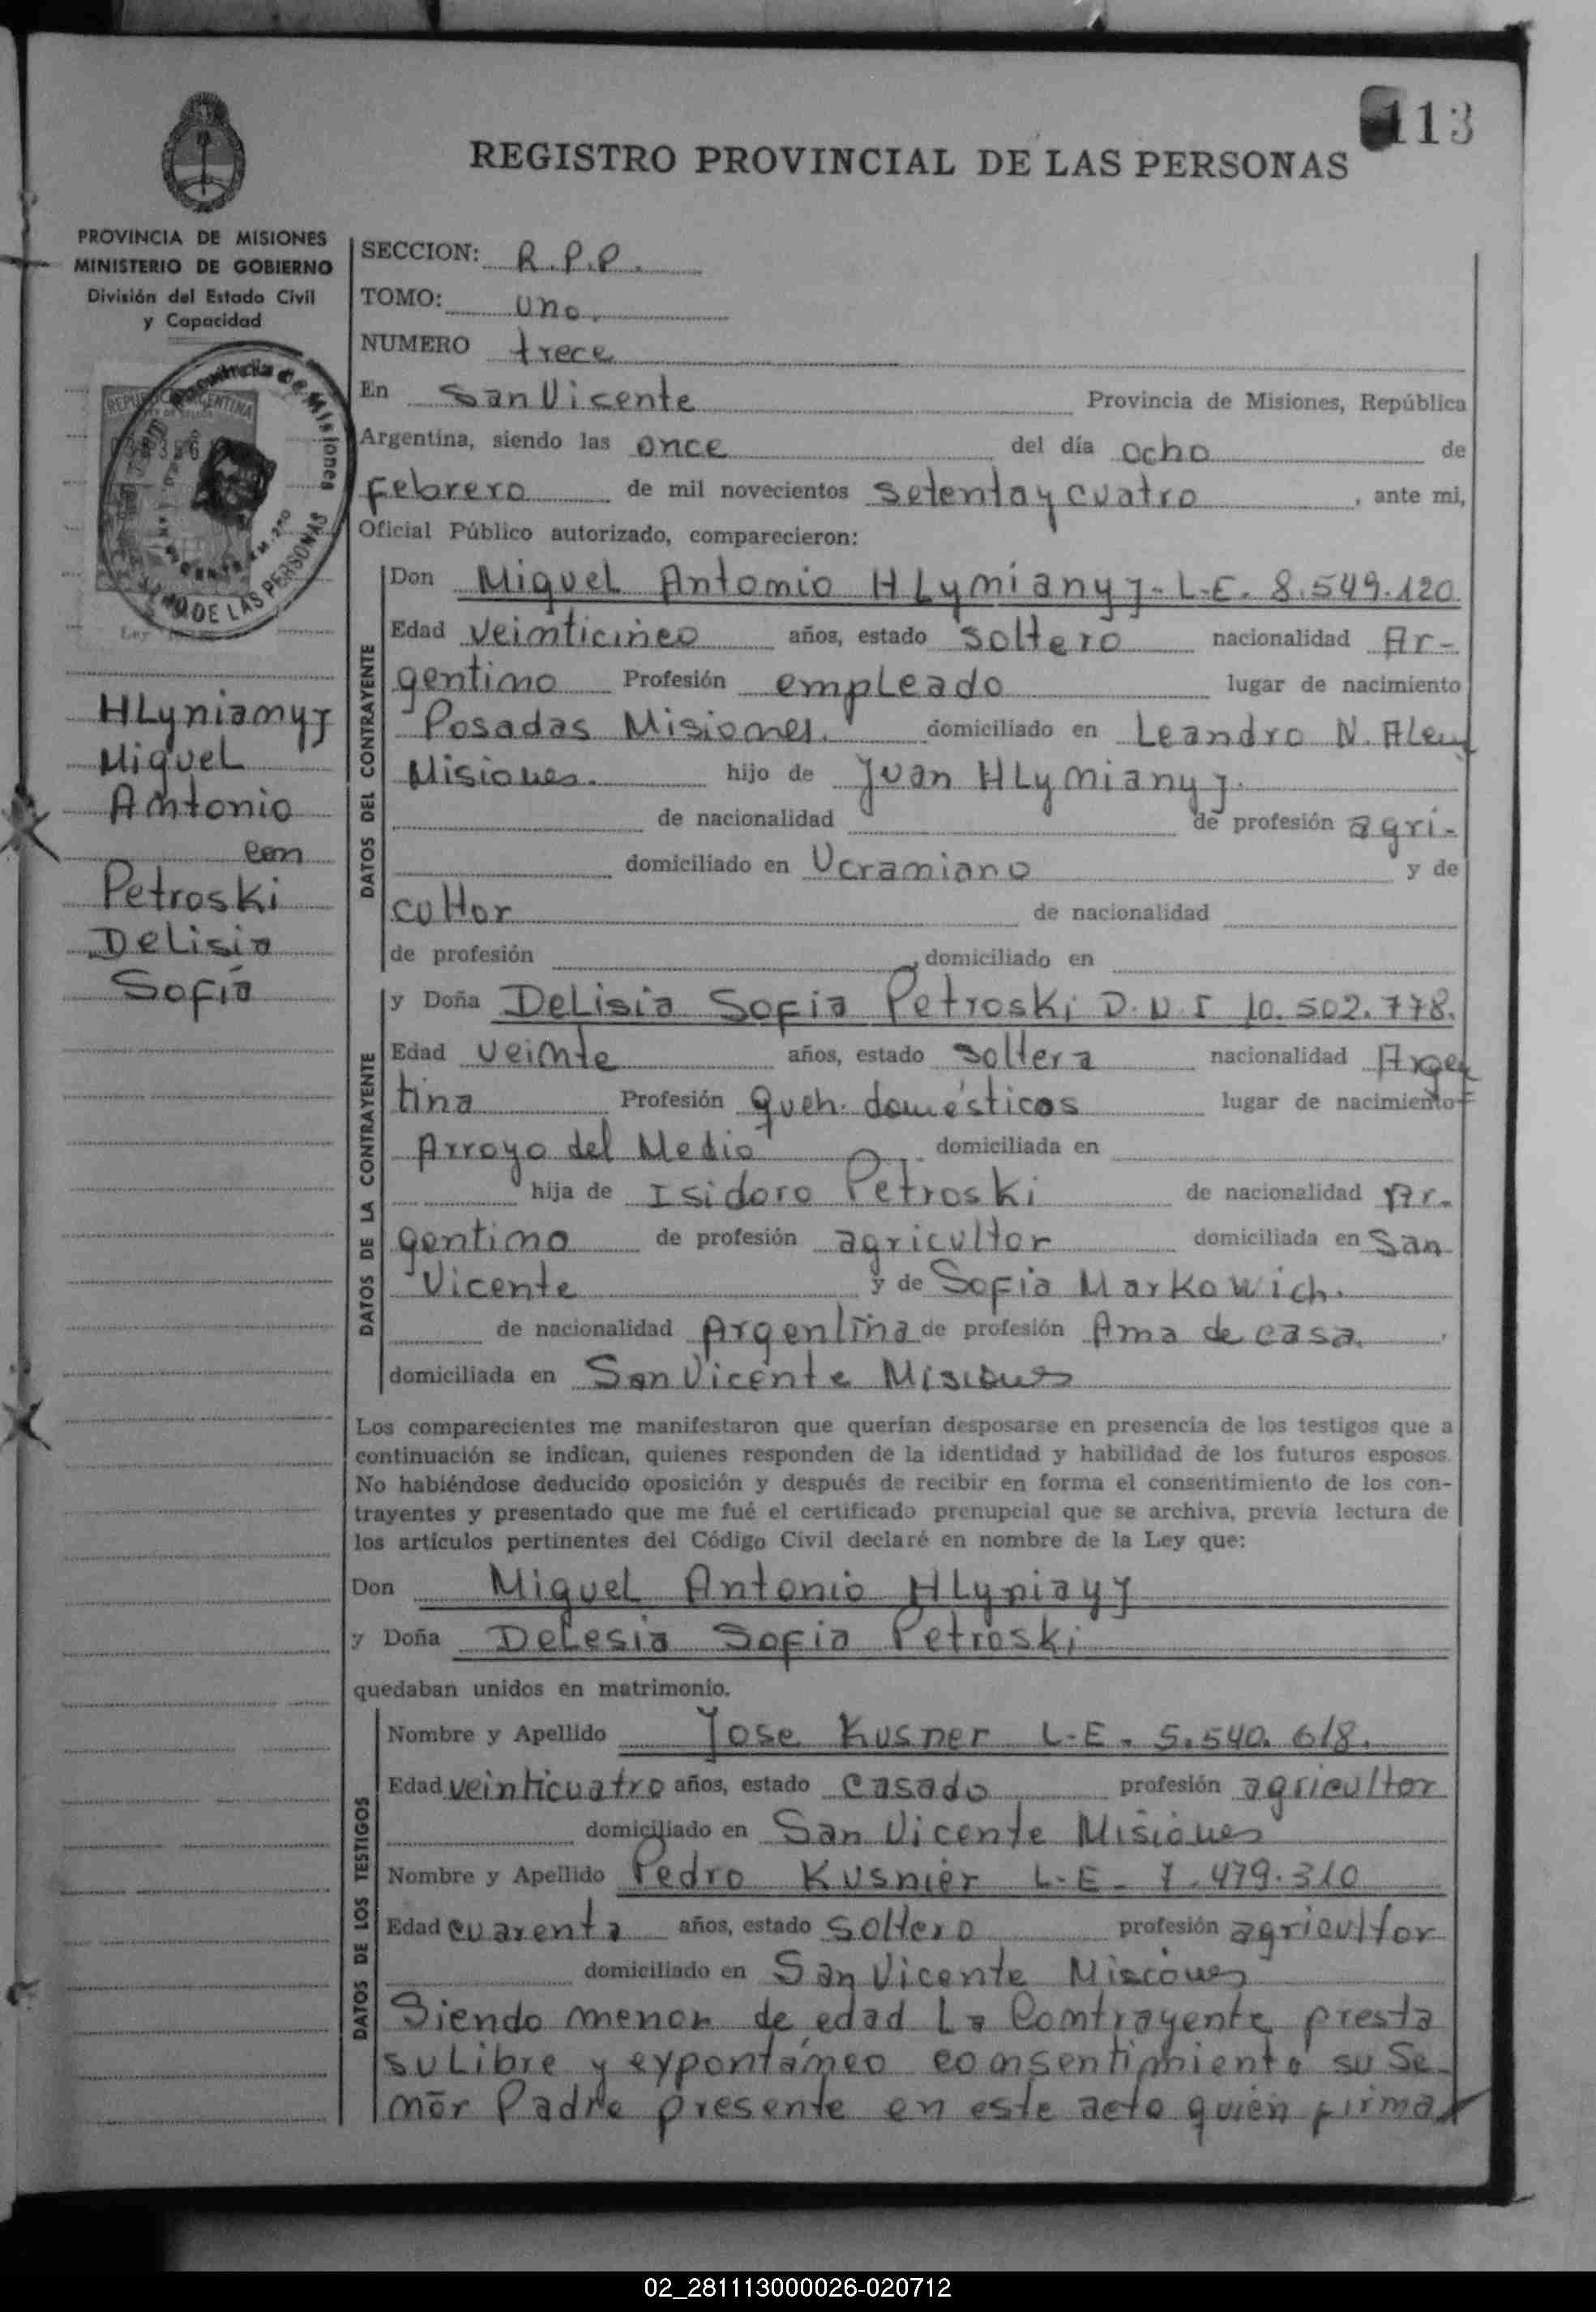 113
REGISTRO PROVINCIAL DE LAS PERSONAS
PROVINCIA DE MISIONES
MINISTERIO DE GOBIERNO
División del Estado Civil
y Capacidad
REPUBLICA ARGENTINA
Provincia de Misiones
DE LAS PERSONAS
Ley
HLyniamyj
Miguel
Antonio
con
Petroski
Delisia
Sofía
SECCION: R.P.P.
TOMO: uno.
NUMERO trece
En San Vicente Provincia de Misiones, República
Argentina, siendo las once del día ocho de
Febrero de mil novecientos setenta y cuatro, ante mi,
Oficial Público autorizado, comparecieron:
DATOS DEL CONTRAYENTE
Don Miguel Antonio HLymianyj - L.E. 8.549.120
Edad veinticinco años, estado soltero nacionalidad Ar-
gentino Profesión empleado lugar de nacimiento
Posadas Misiones. domiciliado en Leandro N. Alem
Misiones. hijo de Juan HLymianyj.
de nacionalidad de profesión agri-
domiciliado en Ucraniano y de
cultor de nacionalidad
de profesión , domiciliado en
DATOS DE LA CONTRAYENTE
y Doña Delisia Sofia Petroski D.N.I 10.502.778.
Edad veinte años, estado soltera nacionalidad Argen
tina Profesión queh. domésticos lugar de nacimiento
Arroyo del Medio domiciliada en
hija de Isidoro Petroski de nacionalidad Ar-
gentino de profesión agricultor domiciliada en San
Vicente y de Sofia Markowich.
de nacionalidad Argentina de profesión Ama de casa.
domiciliada en San Vicente Misiones
Los comparecientes me manifestaron que querían desposarse en presencia de los testigos que a
continuación se indican, quienes responden de la identidad y habilidad de los futuros esposos.
No habiéndose deducido oposición y después de recibir en forma el consentimiento de los con-
trayentes y presentado que me fué el certificado prenupcial que se archiva, previa lectura de
los artículos pertinentes del Código Civil declaré en nombre de la Ley que:
Don Miguel Antonio HLypiayj
y Doña Delesia Sofia Petroski
quedaban unidos en matrimonio.
DATOS DE LOS TESTIGOS
Nombre y Apellido Jose Kusner L.E. 5.540.618.
Edad veinticuatro años, estado casado profesión agricultor
domiciliado en San Vicente Misiones
Nombre y Apellido Pedro Kusnier L.E. 7.479.310
Edad cuarenta años, estado soltero profesión agricultor
domiciliado en San Vicente Misiones
Siendo menor de edad La Contrayente presta
su Libre y expontáneo consentimiento su Se-
ñor Padre presente en este acto quién firma
02_281113000026-020712